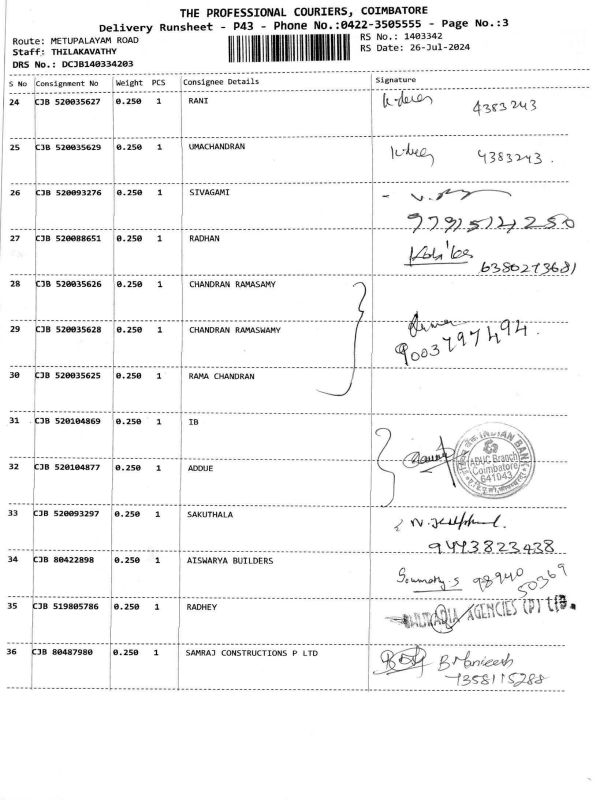 THE PROFESSIONAL COURIERS, COIMBATORE
Delivery Runsheet - P43 - Phone No.:0422-3505555 - Page No.:3
Route: METUPALAYAM ROAD
Staff: THILAKAVATHY
DRS No.: DCJB140334203
RS No.: 1403342
RS Date: 26-Jul-2024
S No Consignment No Weight PCS Consignee Details Signature
24 CJB 520035627 0.250 1 RANI 4383243
25 CJB 520035629 0.250 1 UMACHANDRAN 4383243.
26 CJB 520093276 0.250 1 SIVAGAMI
9791514250
27 CJB 520088651 0.250 1 RADHAN
6380273681
28 CJB 520035626 0.250 1 CHANDRAN RAMASAMY
29 CJB 520035628 0.250 1 CHANDRAN RAMASWAMY
9003797494.
30 CJB 520035625 0.250 1 RAMA CHANDRAN
31 CJB 520104869 0.250 1 IB
INDIAN BANK
ADUC Branch
Coimbatore
641043
32 CJB 520104877 0.250 1 ADDUE
33 CJB 520093297 0.250 1 SAKUTHALA
9443823438
34 CJB 80422898 0.250 1 AISWARYA BUILDERS
98940
50369
35 CJB 519805786 0.250 1 RADHEY AGENCIES (P) LTD.
36 CJB 80487980 0.250 1 SAMRAJ CONSTRUCTIONS P LTD
7358115288